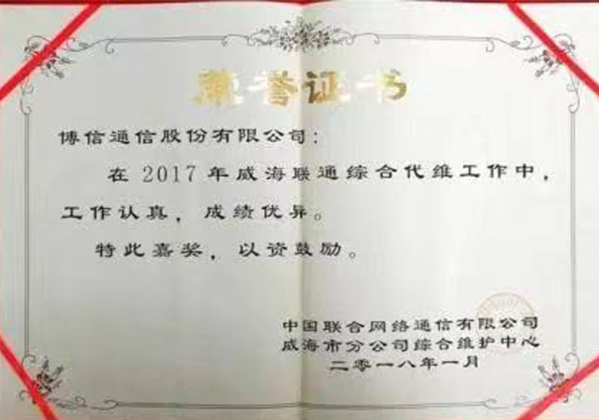 荣誉证书
博信通信股份有限公司：
在2017年威海联通综合代维工作中，
工作认真，成绩优异。
特此嘉奖，以资鼓励。
中国联合网络通信有限公司
威海市分公司综合维护中心
二零一八年一月